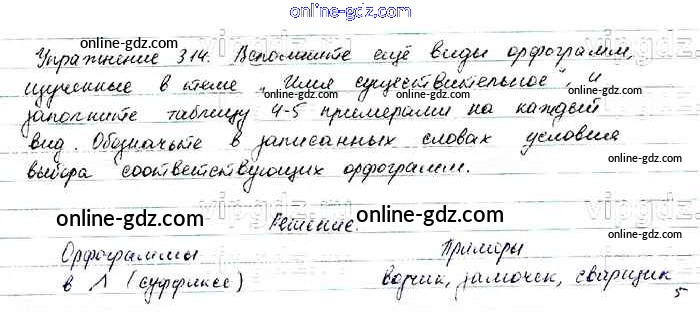 online-gdz.com
Упражнение 314. Вспомните ещё виды орфограмм,
изученные в теме „Имя существительное" и
заполните таблицу 4-5 примерами на каждый
вид. Обозначьте в записанных словах условия
выбора соответствующих орфограмм.
online-gdz.com online-gdz.com
Решение.
Орфограммы Примеры
в Λ (суффиксе) водчик, замочек, сварщик
5